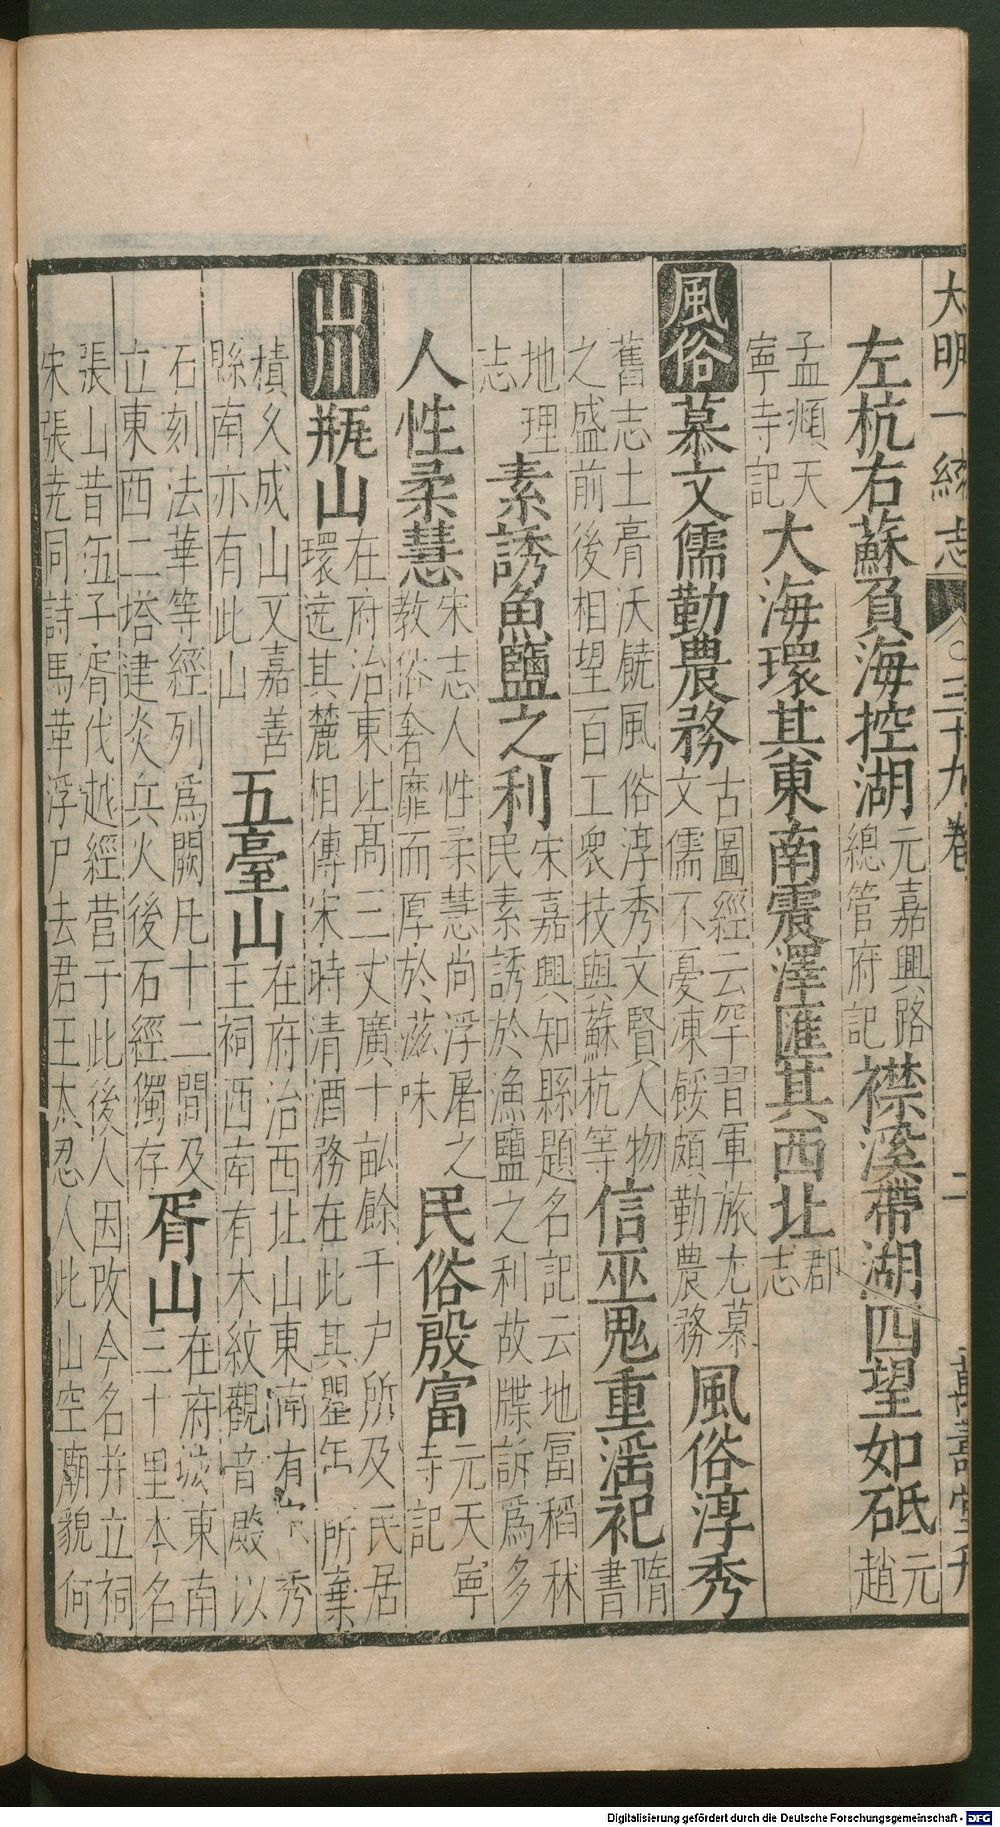 大明一統志 三十九卷 二 萬壽堂刊
左杭右蘇負海控湖 元嘉興路總管府記 襟溪帶湖四望如砥 元趙
孟頫天寧寺記 大海環其東南震澤匯其西北 郡志
風俗 慕文儒勤農務 古圖經云罕習軍旅尤慕文儒不憂凍餒頗勤農務 風俗淳秀
舊志土膏沃饒風俗淳秀文賢人物之盛前後相望百工衆技與蘇杭等 信巫鬼重淫祀 隋書
地理志 素誘魚鹽之利 宋嘉興知縣題名記云地富稻秫民素誘於漁鹽之利故牒訴爲多
人性柔慧 宋志人性柔慧尚浮屠之教俗奢靡而厚於滋味 民俗殷富 元天寧寺記
山川 瓶山 在府治東北高三丈廣十畝餘千户所及民居環遶其麓相傳宋時清酒務在此其罌缶所棄
積久成山又嘉善縣南亦有此山 五臺山 在府治西北山東南有秀王祠西南有木紋觀音殿以
石刻法華等經列爲闕凡十二間及立東西二塔建炎兵火後石經獨存 胥山 在府城東南三十里本名
張山昔伍子胥伐越經營于此後人因改今名并立祠宋張堯同詩馬革浮尸去君王太忍人此山空廟貌何
Digitalisierung gefördert durch die Deutsche Forschungsgemeinschaft - DFG